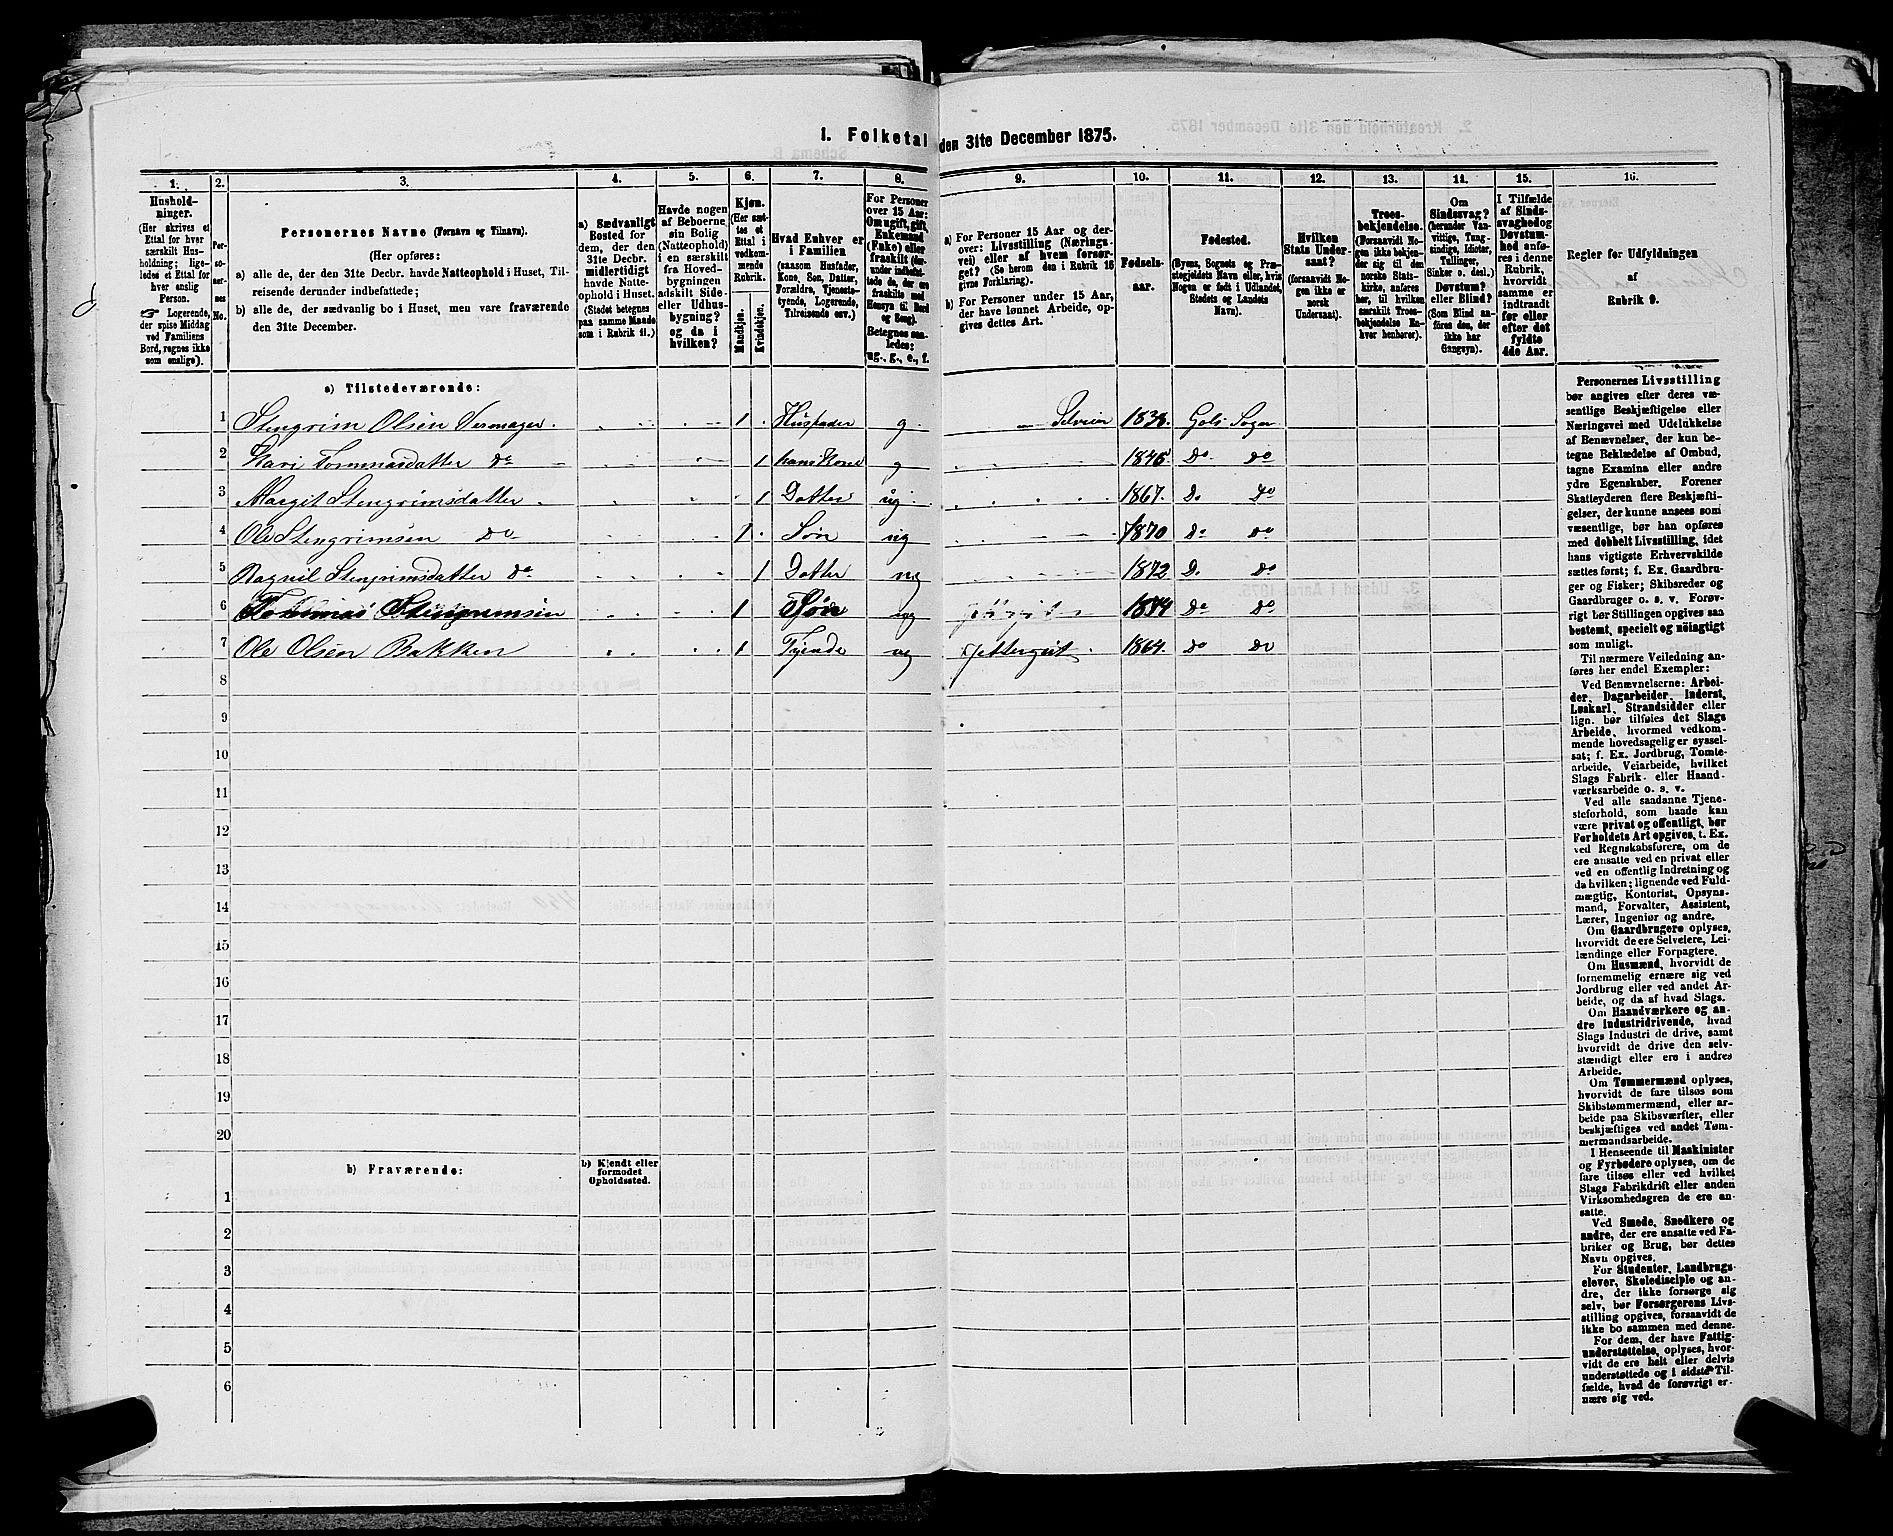 1. Folketal den 31te December 1875.
1. 2. 3. 4. 5. 6. 7. 8. 9. 10. 11. 12. 13. 14. 15. 16.
Hushold-
ninger.
(Her skrives et
Ettal for hver
særskilt Hus-
holdning; lige-
ledes et Ettal for
hver enslig
Person.
Logerende,
der spise Middag
ved Familiens
Bord, regnes ikke
som enslige).
Per-
so-
ner-
nes
No.
Personernes Navne (Fornavn og Tilnavn).
(Her opføres:
a) alle de, der den 31te Decbr. havde Natteophold i Huset, Til-
reisende derunder indbefattede;
b) alle de, der sædvanlig bo i Huset, men vare fraværende
den 31te December.
a) Sædvanligt
Bosted for
dem, der den
31te Decbr.
midlertidigt
havde Natte-
ophold i Huset.
(Stedet betegnes
paa samme Maade
som i Rubrik 11.)
Havde nogen
af Beboerne
sin Bolig
(Natteophold)
i en særskilt
fra Hoved-
bygningen
adskilt Side-
eller Udhus-
bygning?
og da i
hvilken?
Kjøn.
(Her sæt-
tes et
Ettal i
vedkom-
mende
Rubrik.
Mandkjøn.
Kvindekjøn.
Hvad Enhver er
i Familien
(saasom Husfader,
Kone, Søn, Datter,
Forældre, Tjeneste-
tyende, Logerende,
Tilreisende osv.)
For Personer
over 15 Aar:
Om ugift, gift,
Enkemand
(Enke) eller
fraskilt
Betegnes saa-
ledes:
ug., g., e., f.
a) For Personer 15 Aar og der-
over: Livsstilling (Nærings-
vei) eller af hvem forsør-
get? (Se herom den i Rubrik 16
givne Forklaring).
b) For Personer under 15 Aar,
der have lønnet Arbeide, op-
gives dettes Art.
Fødsels-
aar.
Fødested.
(Byens, Sognets og Præ-
stegjeldets Navn eller, hvis
Nogen er født i Udlandet,
Stedets og Landets
Navn).
Hvilken
Stats Under-
saat?
(forsaavidt No-
gen ikke er
norsk
Undersaat).
Troes-
bekjendelse.
(Forsaavidt No-
gen ikke bekjen-
der sig til den
norske Stats-
kirke, anføres
her, til hvilken
særskilt Troes-
bekjendelse En-
hver henhører).
Om
Sindssvag?
(herunder Van-
vittige, Tung-
sindige, Idioter,
Tullinger,
Sinker o. desl.)
Døvstum?
eller Blind?
(Som Blind an-
føres den, der
ikke har
Gangsyn).
I Tilfælde
af Sinds-
svaghed og
Døvstum-
hed anfø-
res i denne
Rubrik,
hvorvidt
samme er
indtraadt
før eller
efter det
fyldte
4de Aar.
Regler for Udfyldningen
af
Rubrik 9.
a) Tilstedeværende:
1 Stengrim Olsen Vermager. 1 Husfader g Selveier 1838. Gols Sogn
2 Kari Tommasdatter Do 1 hans Kone g 1845 Do Do
3 Margit Stengrimsdatter 1 Datter ug 1867. D. Do
4 Ole Stengrimsen Do 1 Søn ug 1870 Do Do
5 Ragnil Stengrimsdatter Do 1 Datter ug 1872 D. Do
6 Tommas Stengrimsen 1 Søn ug 1874 Do Do
7 Ole Olsen Bakken 1 Tyende ug Jettergut 1864. Do Do
8
9
10
11
12
13
14
15
16
17
18
19
20
b) Fraværende:
b) Kjendt eller
formodet
Opholdssted.
1
2
3
4
5
6
Personernes Livsstilling
bør angives efter deres væ-
sentlige Beskjæftigelse eller
Næringsvei med Udelukkelse
af Benævnelser, der kun be-
tegne Beklædelse af Ombud,
tagne Examina eller andre
ydre Egenskaber. Forener
Skatteyderen flere Beskjæfti-
gelser, der kunne ansees som
væsentlige, bør han opføres
med dobbelt Livsstilling, idet
hans vigtigste Erhvervskilde
sættes først; f. Ex. Gaardbru-
ger og Fisker; Skibsreder og
Gaardbruger o. s. v. Forøv-
rigt bør Stillingen opgives saa
bestemt, specielt og nøiagtigt
som muligt.
Til nærmere Veiledning an-
føres her endel Exempler:
Ved Benævnelserne: Arbei-
der, Dagarbeider, Inderst,
Løskarl, Strandsidder eller
lign. bør tilføies det Slags
Arbeide, hvormed vedkom-
mende hovedsagelig er syssel-
sat; f. Ex. Jordbrug, Tomte-
arbeide, Veiarbeide, hvilket
Slags Fabrik- eller Haand-
værksarbeide o. s. v.
Ved alle saadanne Tjene-
steforhold, som baade kan
være privat og offentligt, bør
Forholdets Art opgives, t. Ex.
ved Regnskabsførere, om de
ere ansatte ved en privat eller
ved en offentlig Indretning og
da hvilken; lignende ved Fuld-
mægtig, Kontorist, Opsyns-
mand, Forvalter, Assistent,
Lærer, Ingeniør og andre.
Om Gaardbrugere oplyses,
hvorvidt de ere Selveiere, Lei-
lændinge eller Forpagtere.
Om Husmænd, hvorvidt de
fornemmelig ernære sig ved
Jordbrug eller ved andet Ar-
beide, og da af hvad Slags.
Om Haandværkere og an-
dre Industridrivende, hvad
Slags Industri de drive, samt
hvorvidt de drive den selv-
stændigt eller ere i andres
Arbeide.
Om Tømmermænd oplyses,
hvorvidt de fare tilsøs som
Skibstømmermænd, eller ar-
beide paa Skibsværfter, eller
beskjæftiges ved andet Tøm-
mermandsarbeide.
I Henseende til Maskinister
og Fyrbødere oplyses, om de
fare tilsøs eller ved hvilket
Slags Fabrikdrift eller anden
Virksomhedsgren de ere an-
satte.
Ved Smede, Snedkere og
andre, der ere ansatte ved Fa-
briker og Brug, bør dettes
Navn opgives.
For Studenter, Landbrugs-
elever, Skoledisciple og an-
dre, der ikke forsørge sig
selv, bør Forsørgerens Livs-
stilling opgives, forsaavidt de
ikke bo sammen med denne.
For dem, der have Fattig-
understøttelse, oplyses, hvor-
vidt de ere helt eller delvis
understøttede og i sidste Til-
fælde, hvad de forøvrigt er-
nære sig ved.